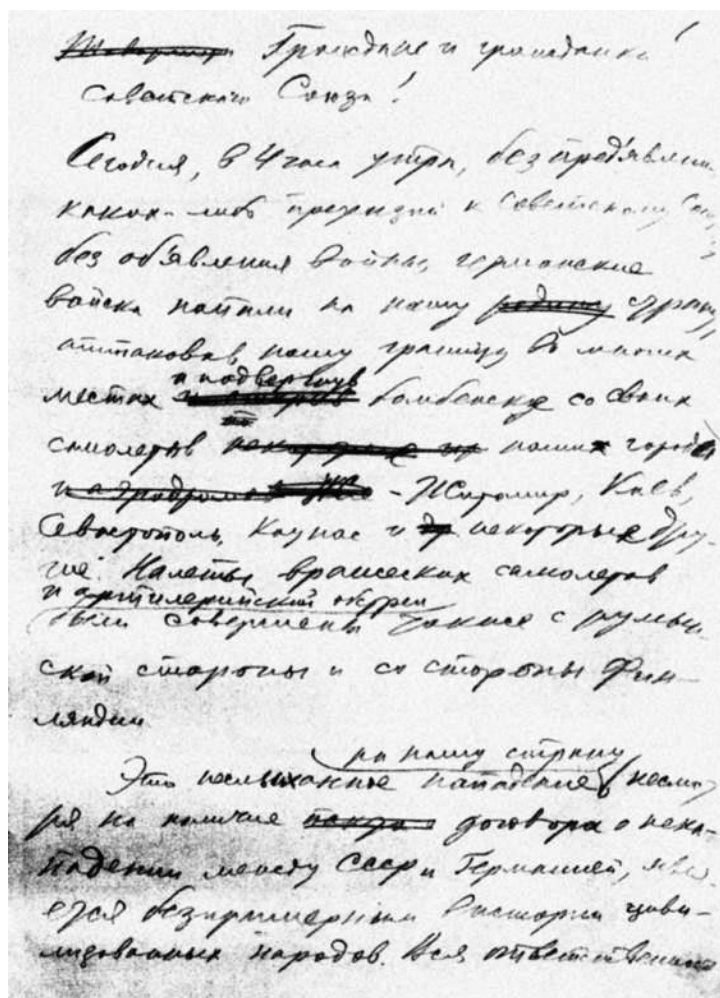 Граждане и гражданки!
Советского Союза!
Сегодня, в 4 часа утра, без предъявлени
каких-либо претензий к Советскому Сою
без объявления войны, германские
войска напали на нашу родину страну,
аттаковав нашу границу во многих
и подвергнув
местах бомбежке со своих
самолетов наши города
и аэродромов - Житомир, Киев,
Севастополь, Каунас и др некоторые дру-
гие. Налеты вражеских самолетов
и артиллерийский обстрел
были совершены также с румын-
ской стороны и со стороны Фин-
ляндии
на нашу страну
Это неслыханное нападение несмот
ря на наличие договора о нена-
падении между СССР и Германией, явля
ется беспримерным в истории циви-
лизованных народов. Вся ответственность